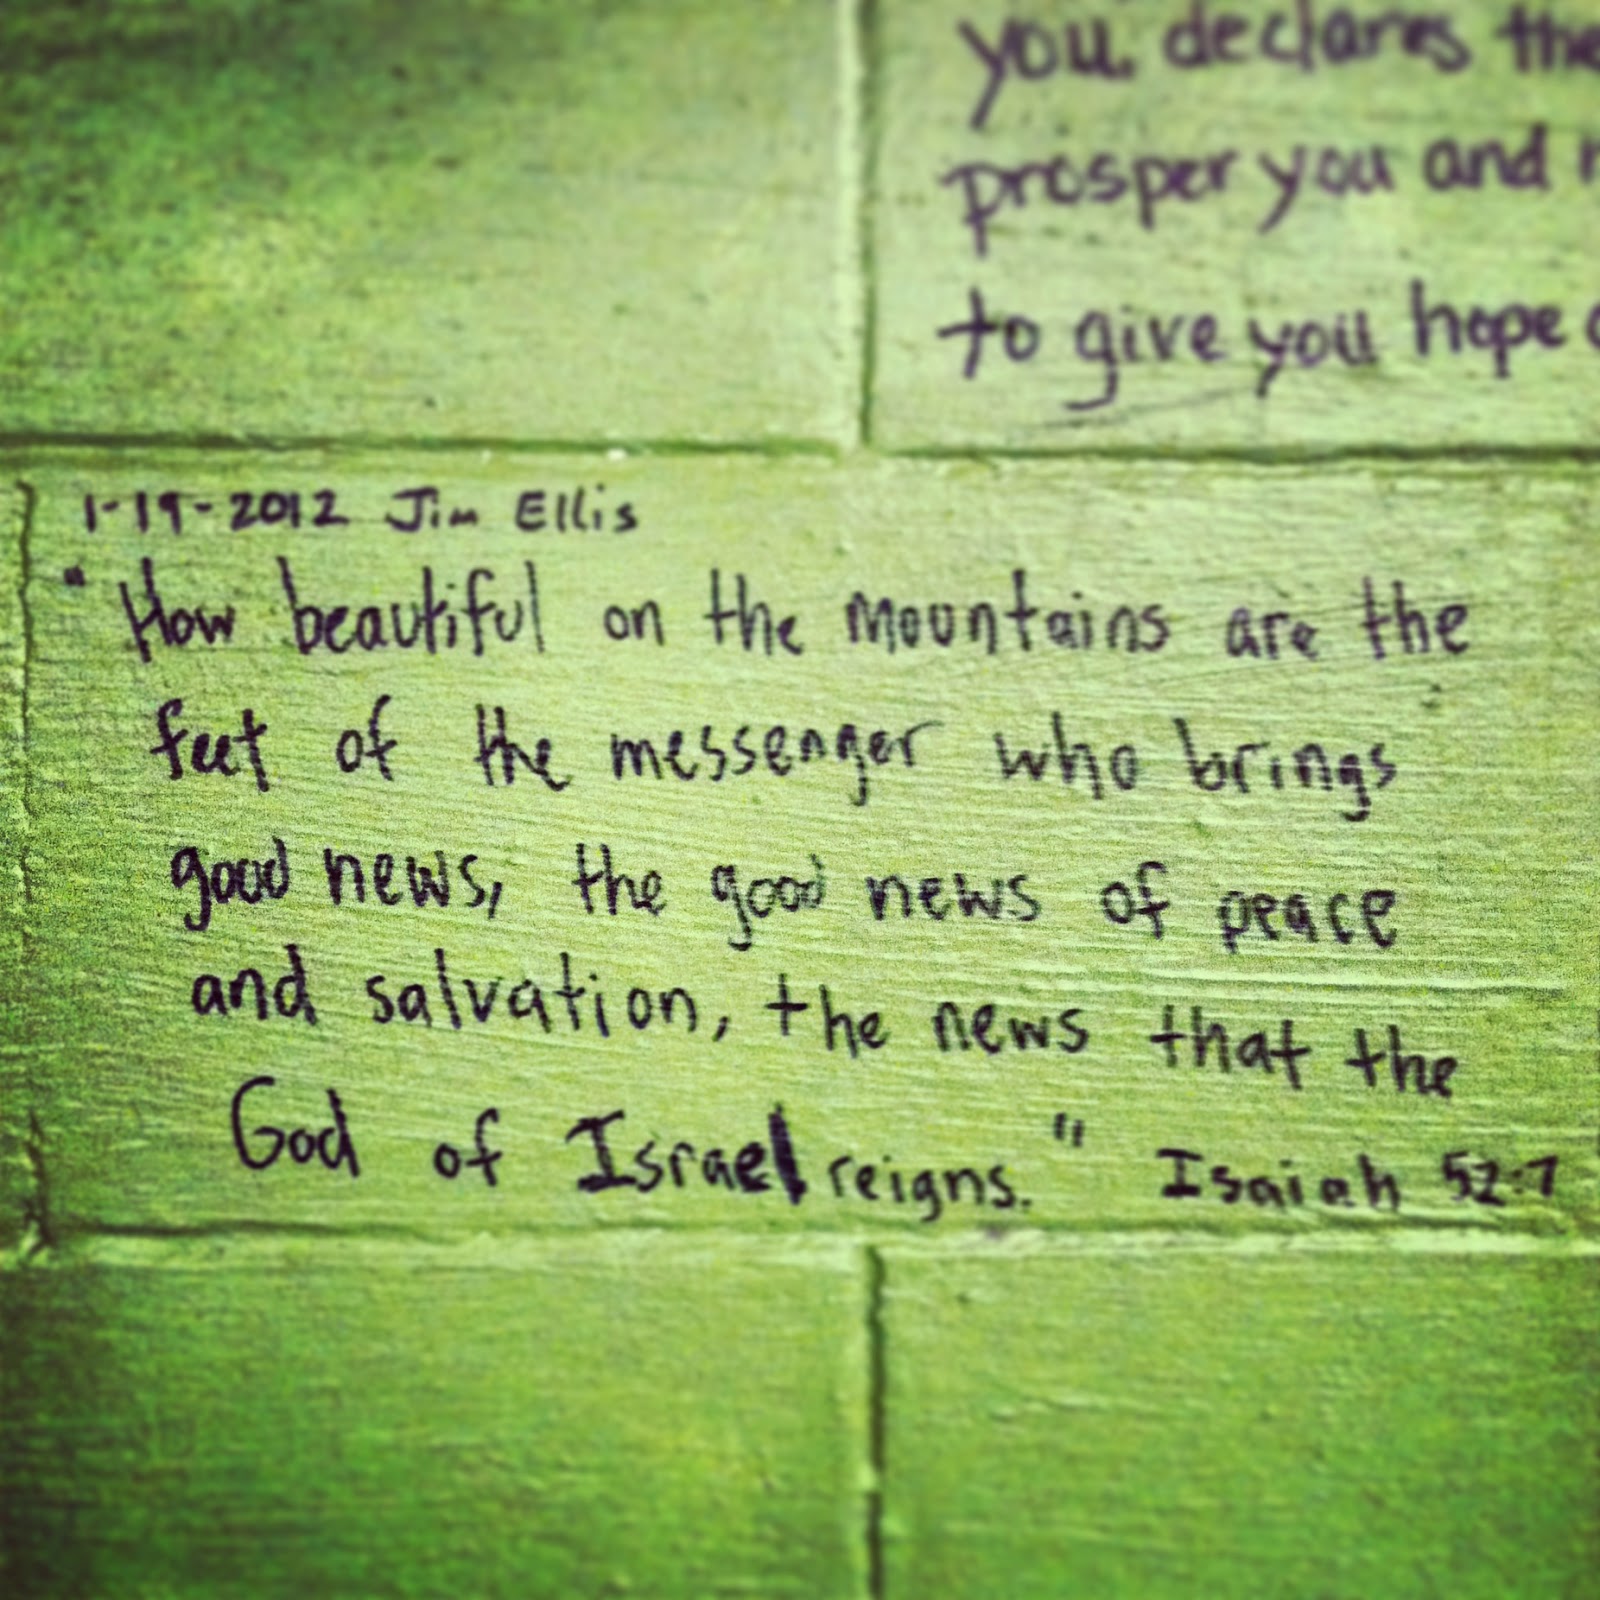 you, declares the
prosper you and
to give you hope
1-19-2012 Jim Ellis
"How beautiful on the mountains are the
feet of the messenger who brings
good news, the good news of peace
and salvation, the news that the
God of Israel reigns." Isaiah 52:7